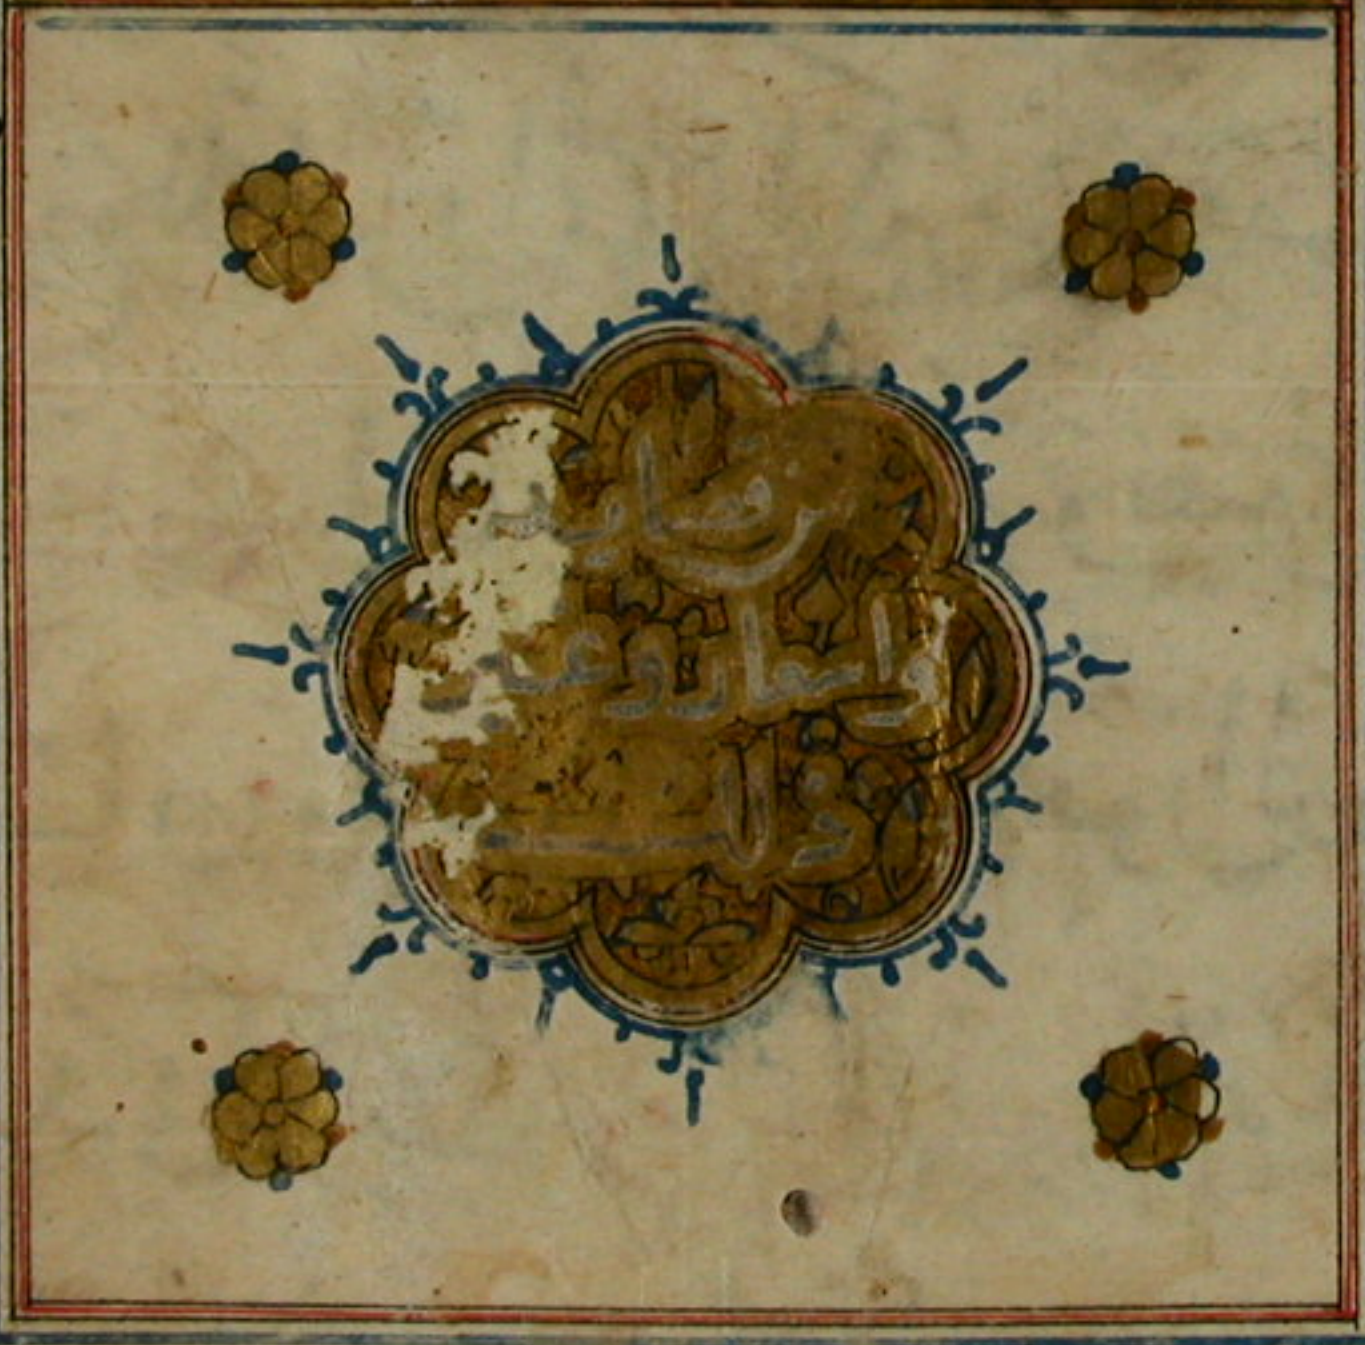 من قصايد
واشعار وغير
ذلك